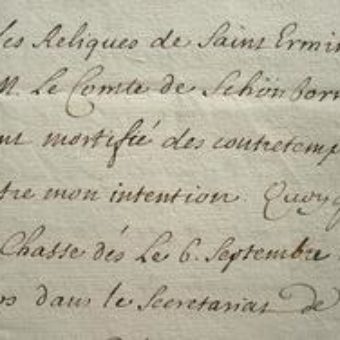 les Reliques de Saint Ermin
M. Le Comte de Schönborn
nt mortifié des contretemp
tre mon intention. Quoyq
Chasse dés Le 6. Septembre
s dans le Secretariat de